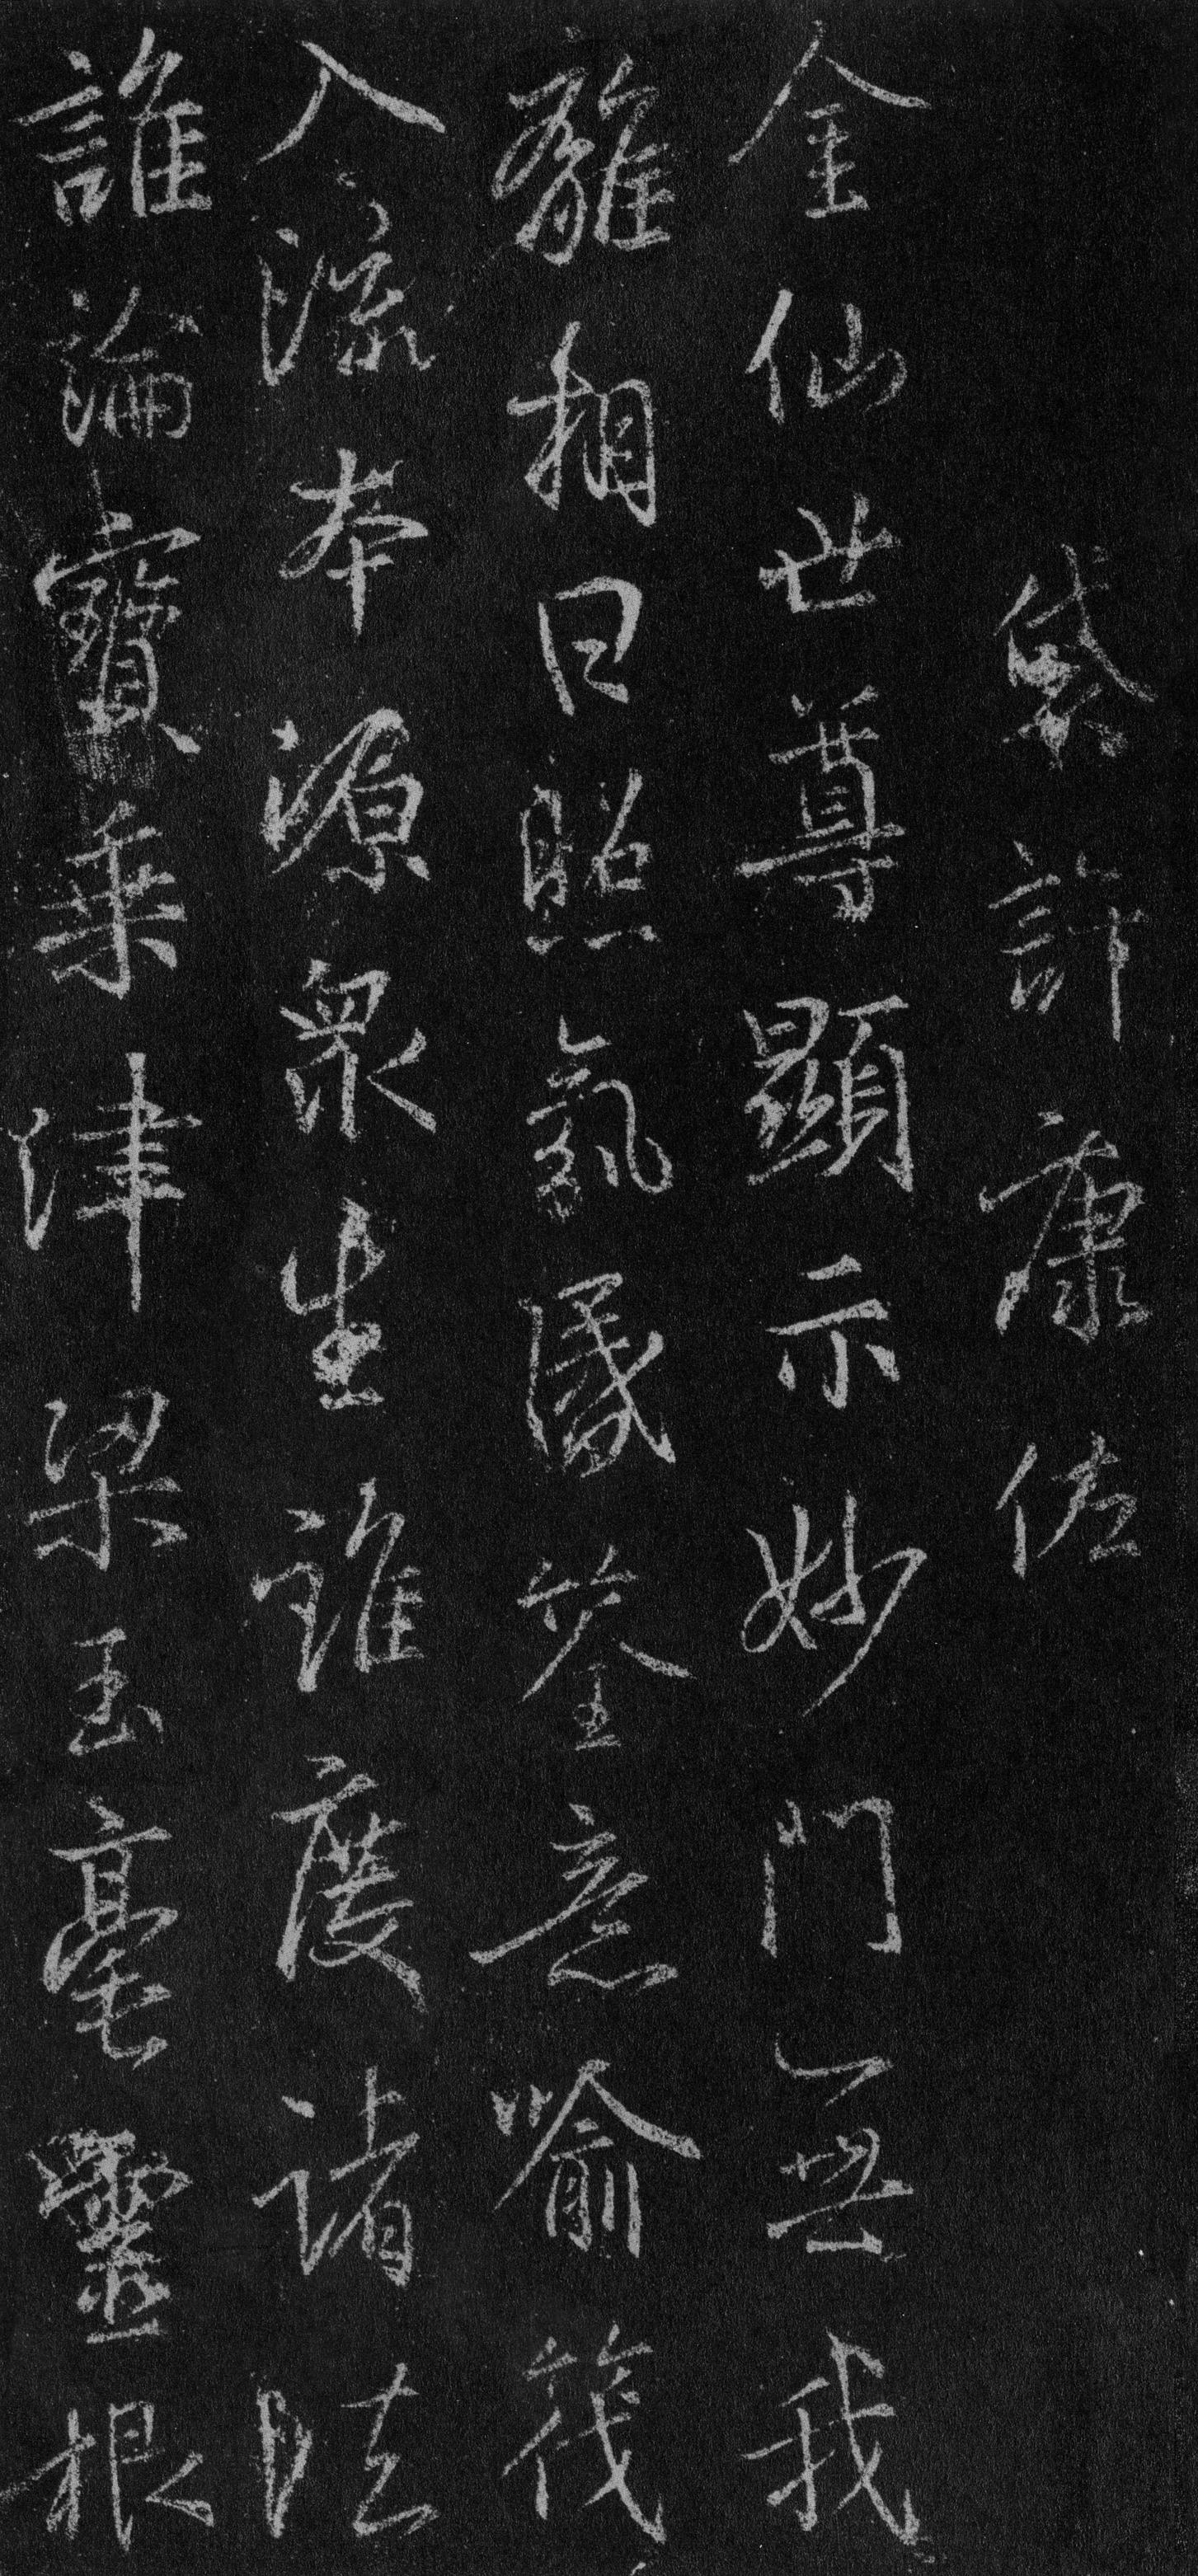 許康佐
金仙世尊顯示妙門無我
離相日照氛昏筌意喻筏
入流本源衆生誰度諸法
誰論寶乘津梁玉毫靈根